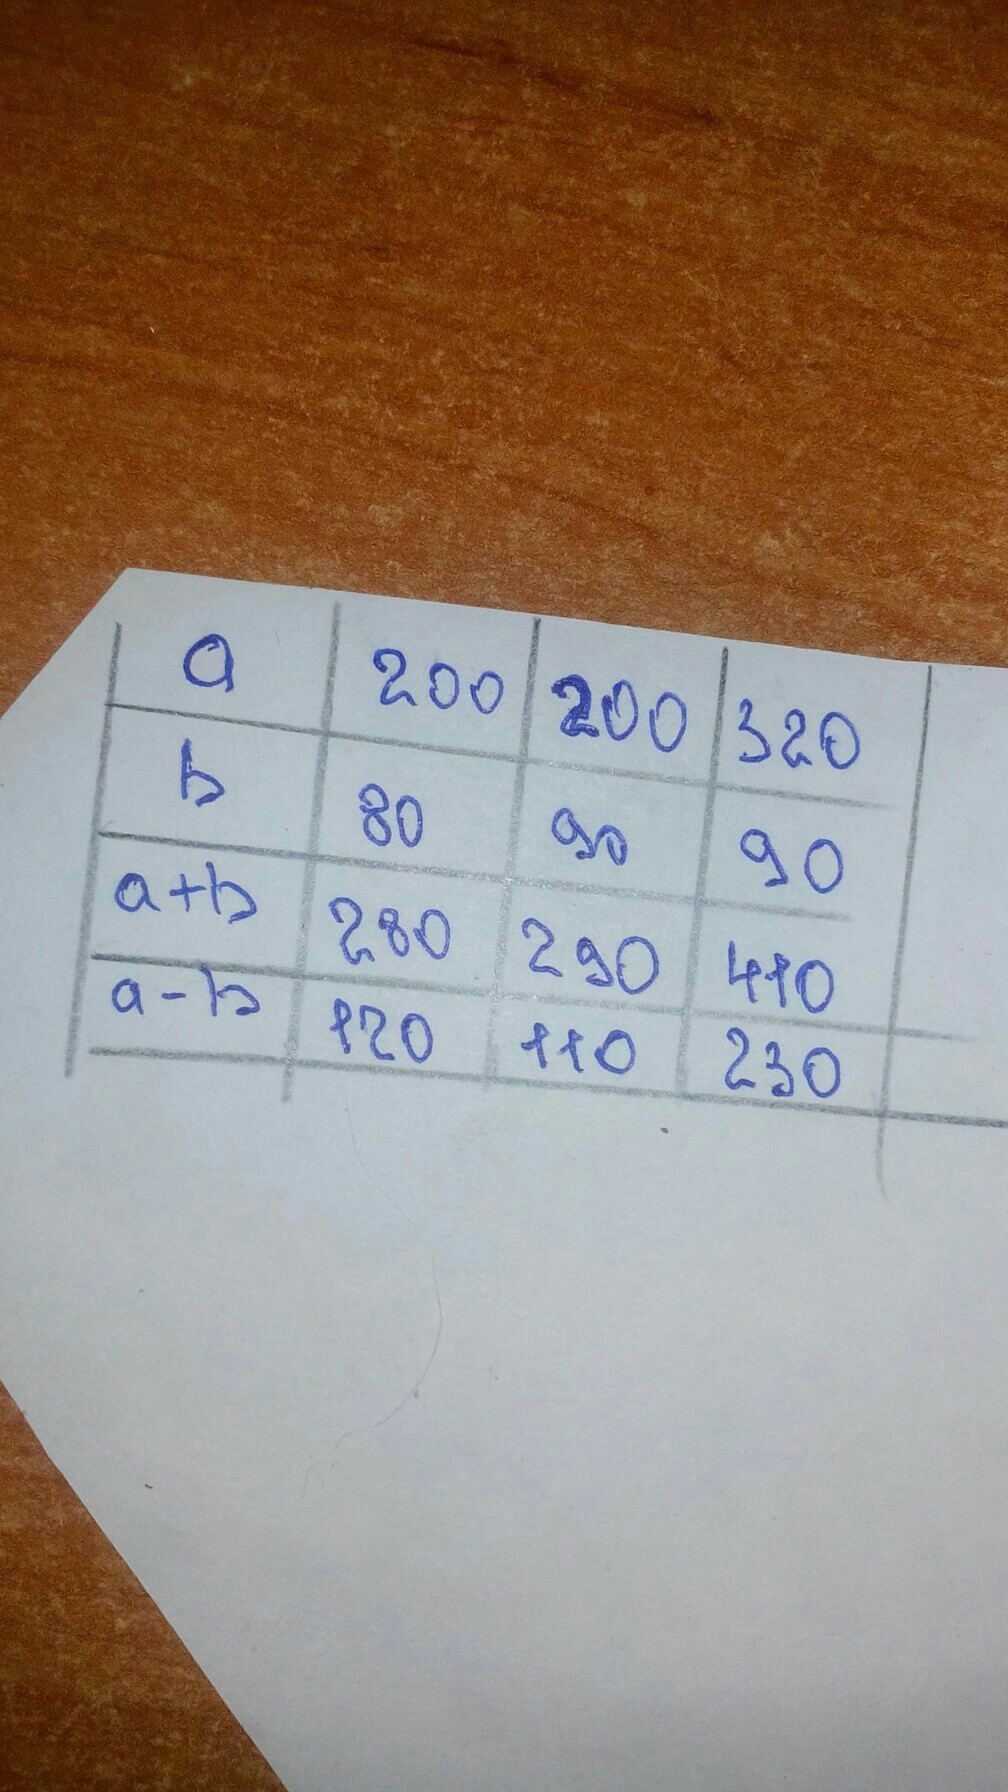 a 200 200 320
b 80 90 90
a+b 280 290 410
a-b 120 110 230